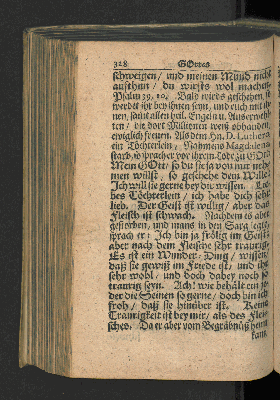 328 GOttes
schweigen / und meinen Mund nicht
aufthun / du wirsts wol machen
Psalm 39, 10. Bald wirds geschehen, so
werdet ihr bey ihnen seyn, und euch mit ih-
nen, samt allen heil. Engeln u. Auserwehl-
ten / die dort Millionen weiß
ewiglich freuen. Als dem Hn. D. Luthero
ein Töchterlein / Nahmens Magdalena
starb, so sprach er vor ihrem Bette zu GOtt:
Mein GOtt / so du sie ja von mir neh-
men willst, so geschehe dein Wille
Ich will sie gerne bey dir wissen. Lie-
bes Töchterlein / ich habe dich sehr
lieb. Der Geist ist willig / aber das
Fleisch ist schwach. Nachdem es aber
gestorben, und mans in den Sarg legte
sprach er: Ich bin ja frölig im Geist
aber nach dem Fleische sehr traurig
Es ist ein Wunder-Ding / wissen /
daß sie gewiß im Friede ist / und ihr
sehr wohl / und doch dabey noch so
traurig seyn. Ach! wie behält ein je-
der die Seinen so gerne / doch bin ich
froh / daß sie hinüber ist. Keine
Traurigkeit ist bey mir / als des Flei-
sches. Da er aber vom Begräbnüß heim
kam